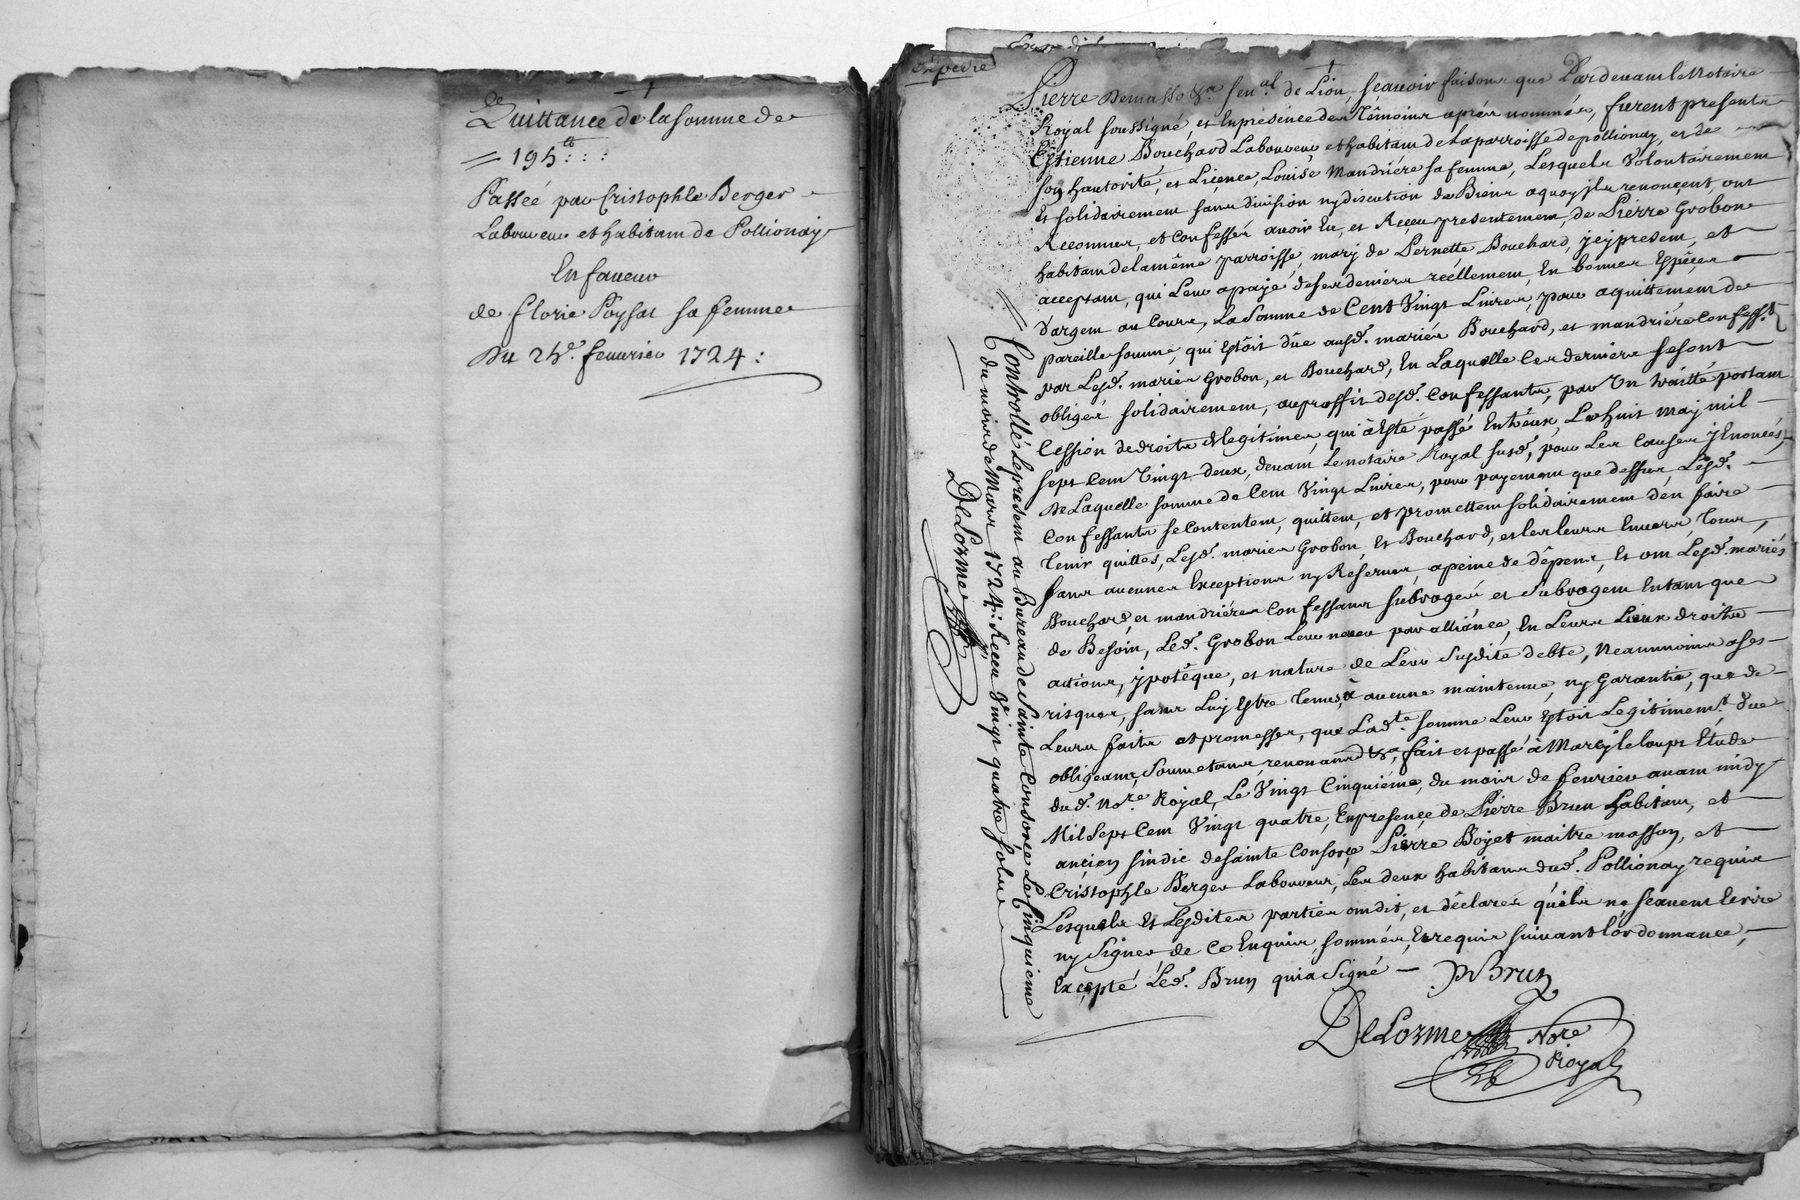 Quittance de la somme de
= 195 lt : : :
Passée par Cristophle Berger
Laboureur et habitant de Pollionay
En faveur
de florie Poyssat sa femme
Du 25e. fevurier 1724 :
expedié
Pierre Demasso &a senal de Lion scavoir faisons que Pardevant le Notaire
Royal soussigné, et En présence des Témoins aprés nommés, furent presents
Estienne Bouchard Laboureur et habitant de La parroisse de pollionay, et de
son hautorité, et Licence, Louïse Mandriére sa femme, Lesquels Volontairement
Et solidairement sans division ny discution de Biens a quoy jls renonçent, ont
Reconnus, et Confessés avoir Eu, et Receu presentement, de Pierre Grobon
habitant de la méme parroisse, mary de Pernette Bouchard, jcy present, et
acceptant, qui Leur a payé de ses deniers réellement, En bonnes Espêçes
d'argent au Cours, La Somme de Cent Vingt Livres, pour aquittement de
pareille somme, qui Estoit dûe ausd. mariés Bouchard, et mandriére Confesst
par Lesd. mariés Grobon, et Bouchard, En Laquelle Ces derniers se sont
obligés solidairement, au proffit desd. Confessants, par Un traitté portant
Cession de droits Legitimes, qui à Esté passé Entr'eux, Le huit may mil
sept Cent Vingt deux, devant Le notaire Royal susd, pour Les Causes y Enoncés,
De Laquelle somme de Cent Vingt Livres, pour payement que dessus Lesd.
Confessants se Contentent, quittent, et promettent solidairement d'en faire
tenir quittes, Lesd. mariés Grobon, et Bouchard, et les leurs Envers tous,
sans aucunes Exceptions ny Réserves, a peine de dépens, Et ont Lesd. mariés
Bouchard, et mandriéres Confessans subrogés et subrogent En tant que
de Besoin, Led. Grobon Leur neveu par alliance, En Leurs Lieux droits
actions, ypotêque, et nature de Leur susdite debte, Neanmoins a ses
risques, sans Luy Estre tenus, à aucune maintenue, ny Garantie, que de
Leurs faits et promesses, que Lade somme Leur Estoit Legitimemt. dûe
obligeant, Soumetans, renonans &a, fait et passé à Marcy le loup Etude
dud. Nore Royal, Le Vingt Cinquiéme, du mois de fevrier avant midy
Mil Sept Cent Vingt quatre, En presence, de Pierre Brun habitant, et
ançien sindic de sainte Consorçe, Pierre Boyet maitre masson, et
Cristophle Berger Laboureur, Les deux habitans dud. Pollionay requis
Lesquels Et Lesdites parties ont dit, et déclarés qu'ils ne sçavent Ecrire
ny Signer de Ce Enquis, sommés, Et requis suivant l'ordonnance,
Excepté Led. Brun qui a Signé — P Brun
DeLorme Nore
Royal
Controllé Le present au Bureau de Sainte Consorçe Le Cinquieme
du mois de Mars 1724 : Receu Vingt quatre sols
DeLorme